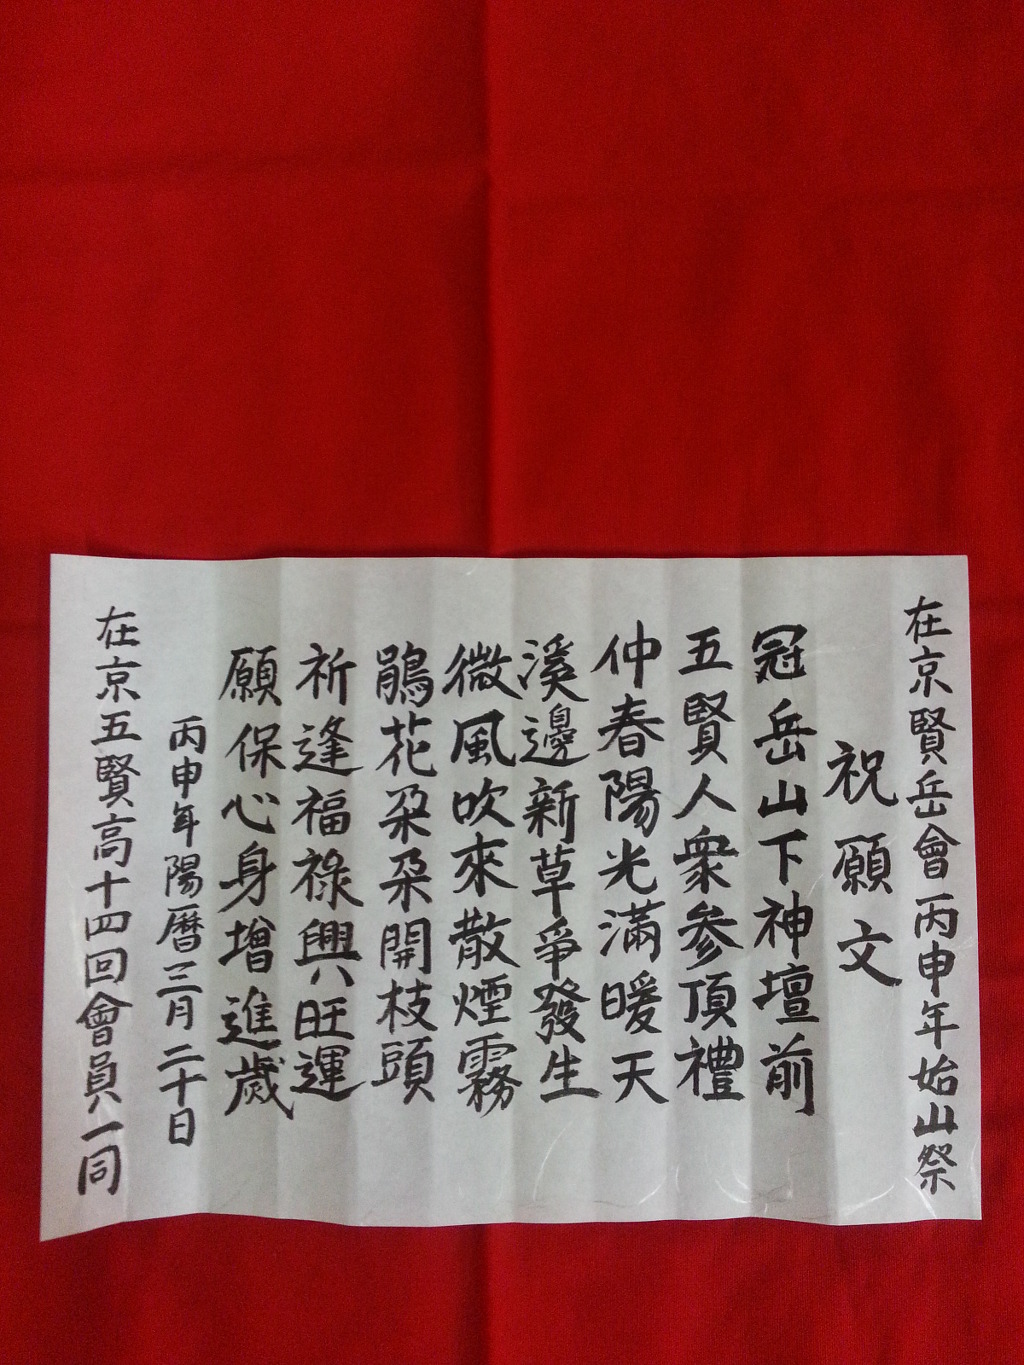 在京賢岳會丙申年始山祭
祝願文
冠岳山下神壇前
五賢人衆參頂禮
仲春陽光滿暖天
溪邊新草爭發生
微風吹來散煙霧
鵑花朶朶開枝頭
祈逢福祿興旺運
願保心身增進歲
丙申年陽曆三月二十日
在京五賢高十四回會員一同